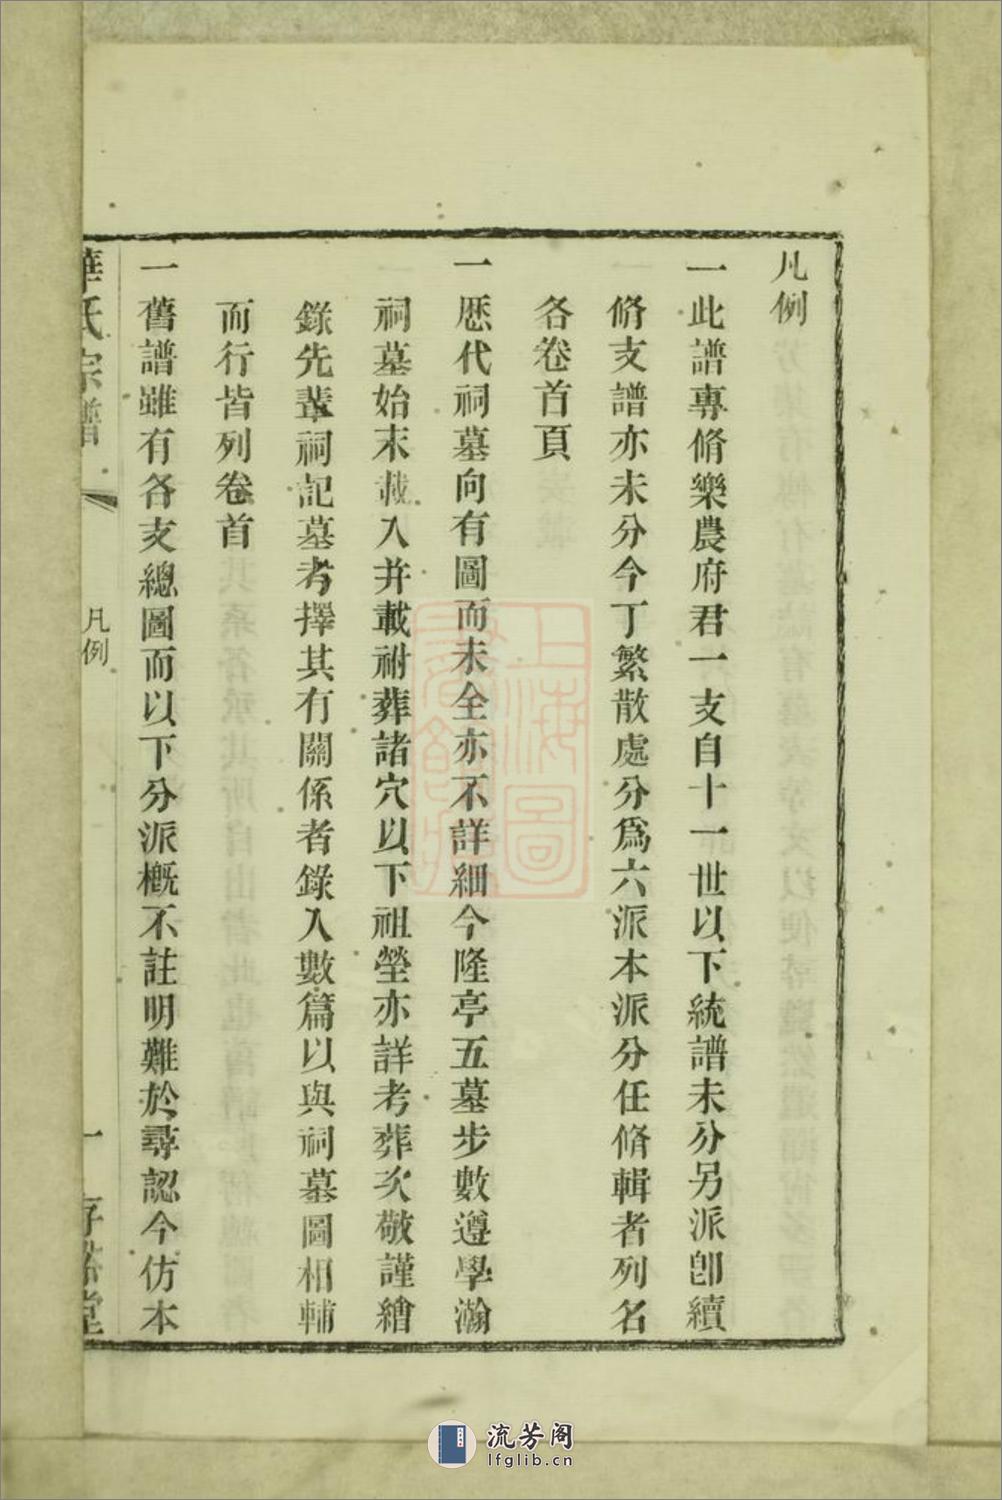 凡例
一此譜專脩樂農府君一支自十一世以下統譜未分另派卽續
脩支譜亦未分今丁繁散處分爲六派本派分任脩輯者列名
各卷首頁
一歷代祠墓向有圖而未全亦不詳細今隆亭五墓步數遵學瀚
祠墓始末載入并載祔葬諸穴以下祖塋亦詳考葬次敬謹繪
錄先輩祠記墓考擇其有關係者錄入數篇以與祠墓圖相輔
而行皆列卷首
一舊譜雖有各支總圖而以下分派槪不註明難於尋認今仿本
華氏宗譜
凡例
一
存裕堂
上海圖書館藏
流芳阁
lfglib.cn